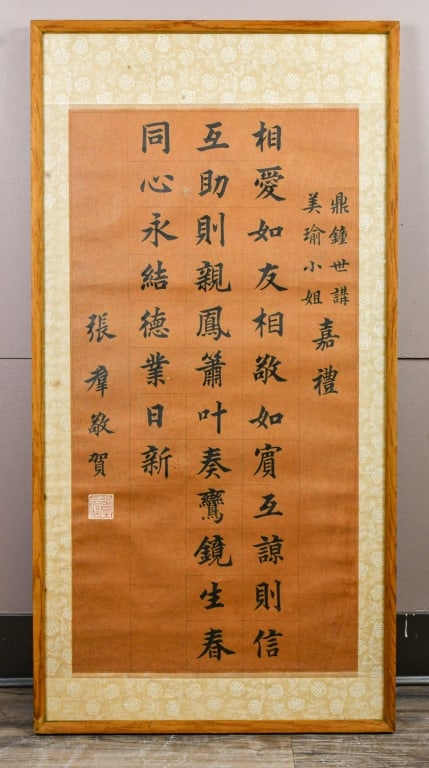 鼎鐘世講
美瑜小姐
嘉禮
相愛如友相敬如賓互諒則信
互助則親鳳簫叶奏鸞鏡生春
同心永結德業日新
張羣敬賀